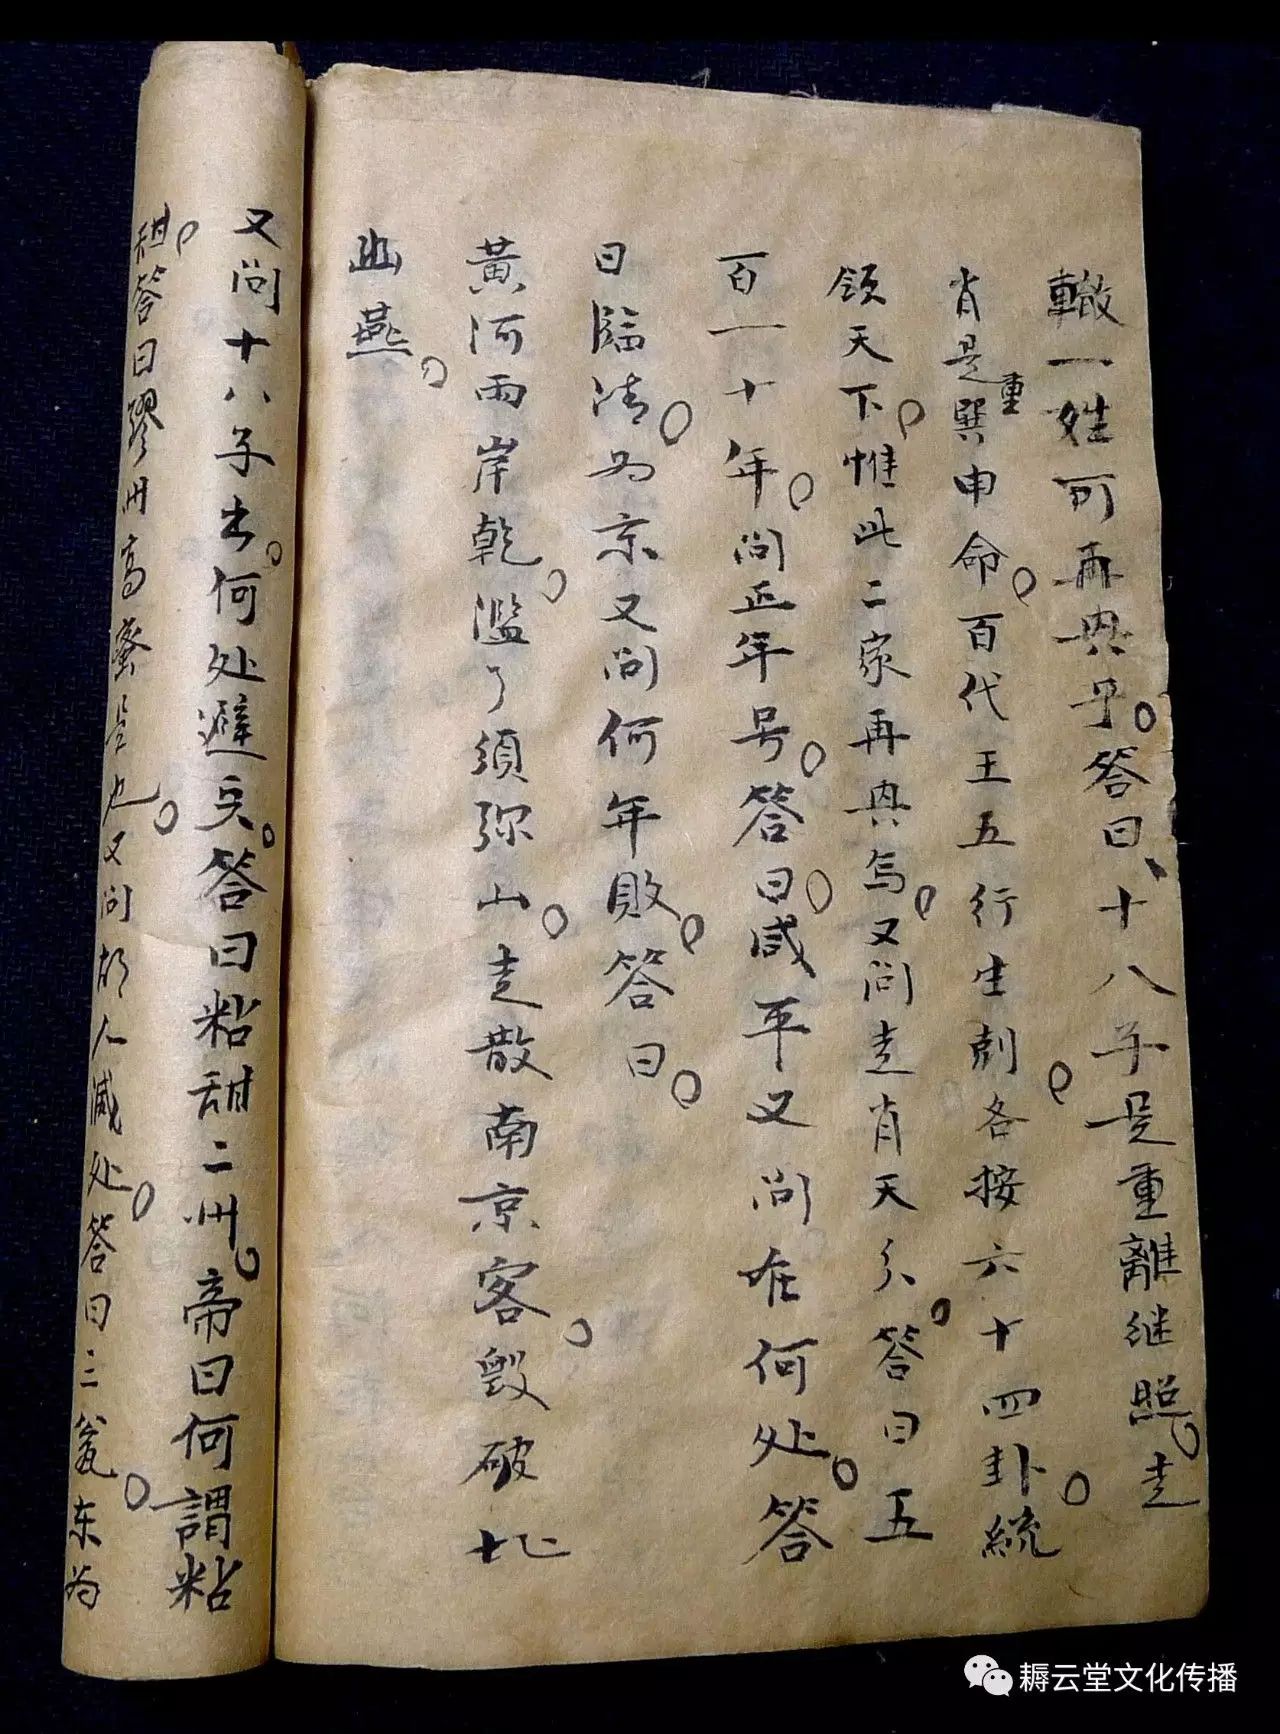 轍一姓可再興乎。答曰、十八子是重離继照。走
肖是重巽申命。百代王五行生剋。各按六十四卦。統
領天下。惟此二家再興焉。又问走肖天分。答曰五
百一十年。问正年号。答曰。咸平又问在何处。答
曰臨清。为京又问何年敗。答曰。
黃河两岸乾。濫了須弥山。走散南京客。毀破北
幽燕。
又问十八子出。何处避兵。答曰粘甜二州。帝曰何謂粘
甜。答曰膠州高密是也。又问胡人滅处。答曰三瓮。东为
耨云堂文化传播